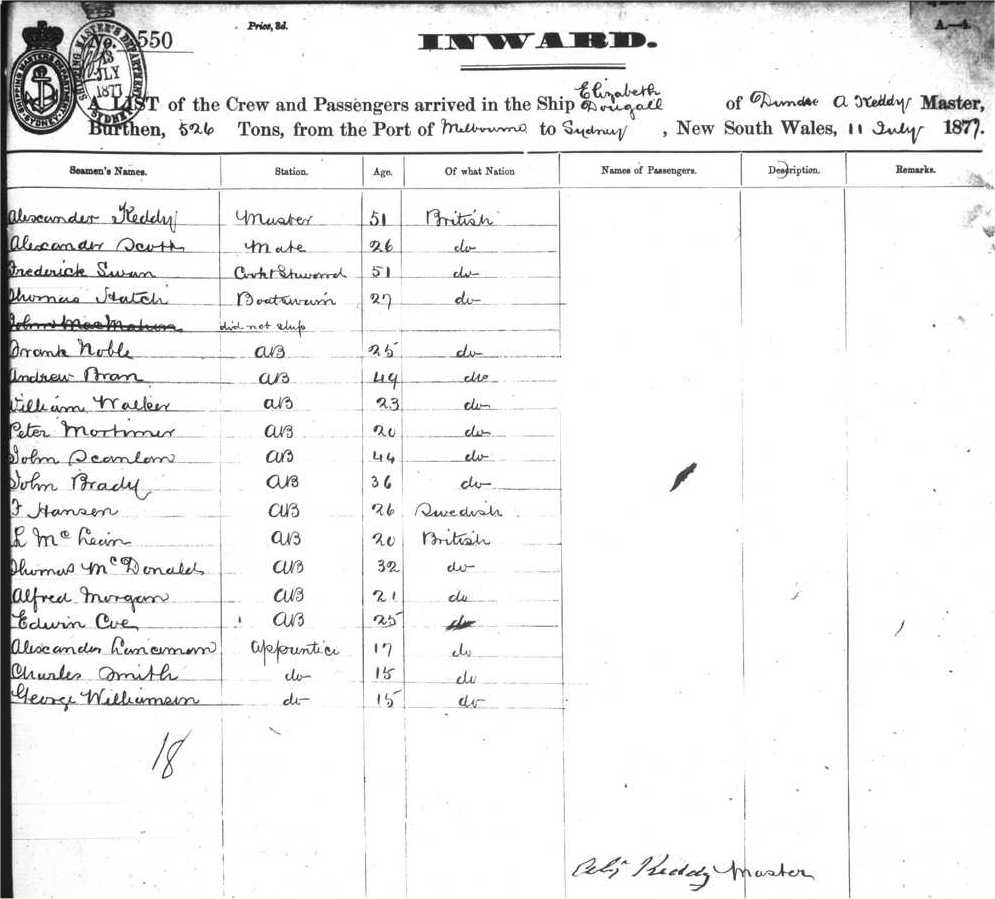 Price, 3d.
550
INWARD.
A—4.
SHIPPING MASTER'S DEPARTMENT SYDNEY
SHIPPING MASTER'S DEPARTMENT
13
JLY
1877
SYDNEY
A LIST of the Crew and Passengers arrived in the Ship Elizabeth Dougall of Dundee A Keddy Master,
Burthen, 526 Tons, from the Port of Melbourne to Sydney, New South Wales, 11 July 1877.
Seamen's Names. Station. Age. Of what Nation Names of Passengers. Description. Remarks.
Alexander Keddy Master 51 British
Alexander Scott Mate 26 do
Frederick Swan Cook & Steward 51 do
Thomas Hatch Boatswain 27 do
John MacMahon did not ship
Frank Noble AB 25 do
Andrew Bran AB 49 do
William Walker AB 23 do
Peter Mortimer AB 20 do
John Scanlan AB 44 do
John Brady AB 36 do
F Hansen AB 26 Swedish
L McLean AB 20 British
Thomas McDonald AB 32 do
Alfred Morgan AB 21 do
Edwin Coe AB 25 do
Alexander Lunciman apprentice 17 do
Charles Smith do 15 do
George Williamson do 15 do
18
Keddy Master